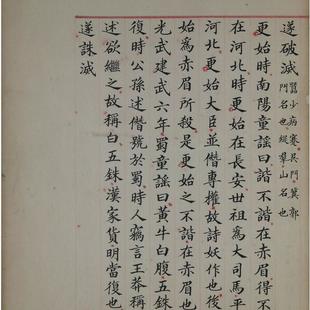 遂破滅 囂少病蹇吳門冀郭
門名也緹羣山名也
更始時南陽童謠曰諧不諧在赤眉得不
在河北時更始在長安世祖為大司馬平
河北更始大臣並僭專權故謠妖作也後
始為赤眉所殺是更始之不諧在赤眉也
光武建武六年蜀童謠曰黃牛白腹五銖
復時公孫述僭號於蜀時人竊言王莽稱
述欲繼之故稱白五銖漢家貨明當復也
遂誅滅